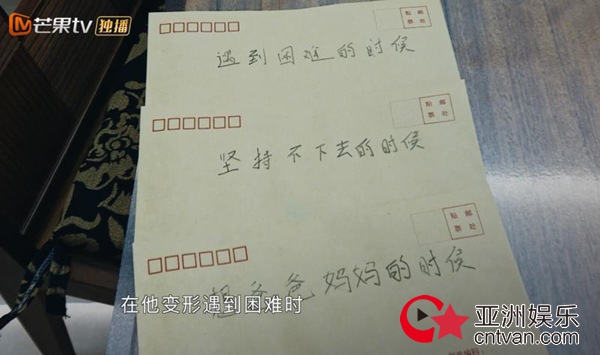 芒果tv 独播
贴 邮
票 处
遇到困难的时候
贴 邮
票 处
坚持不下去的时候
贴 邮
票 处
想爸爸妈妈的时候
在他变形遇到困难时
亚洲娱乐
cntvan.com